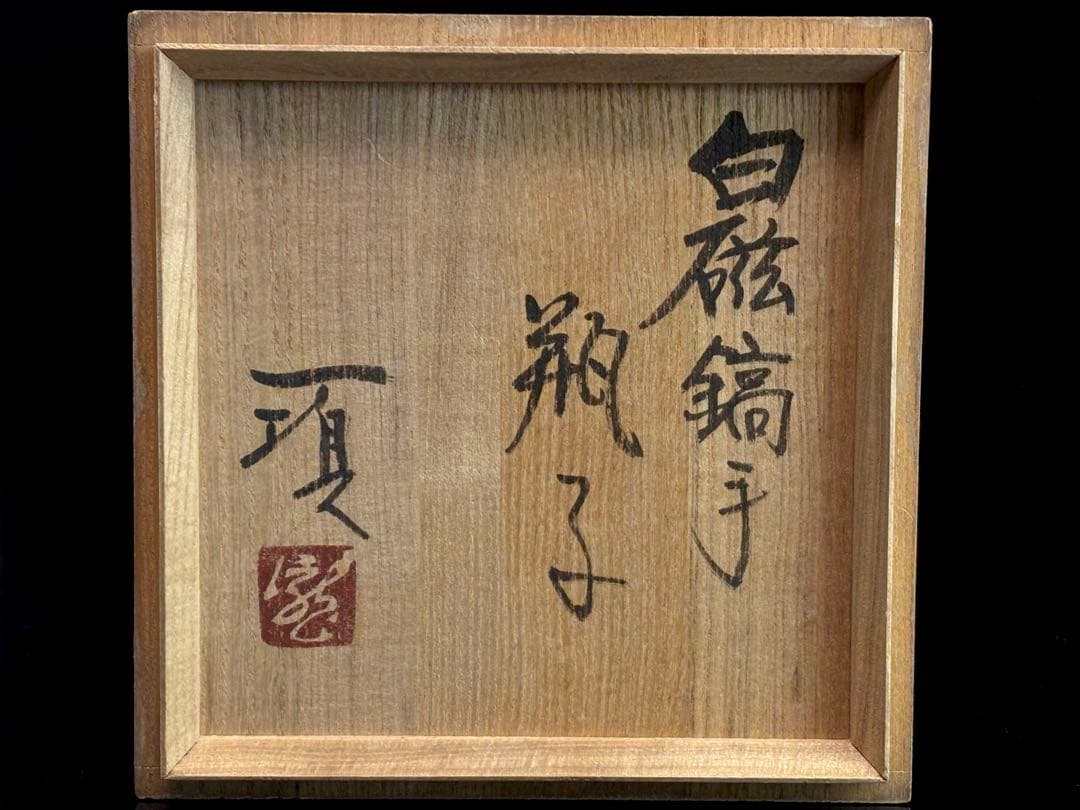 白磁鎬手
瓶子
一項